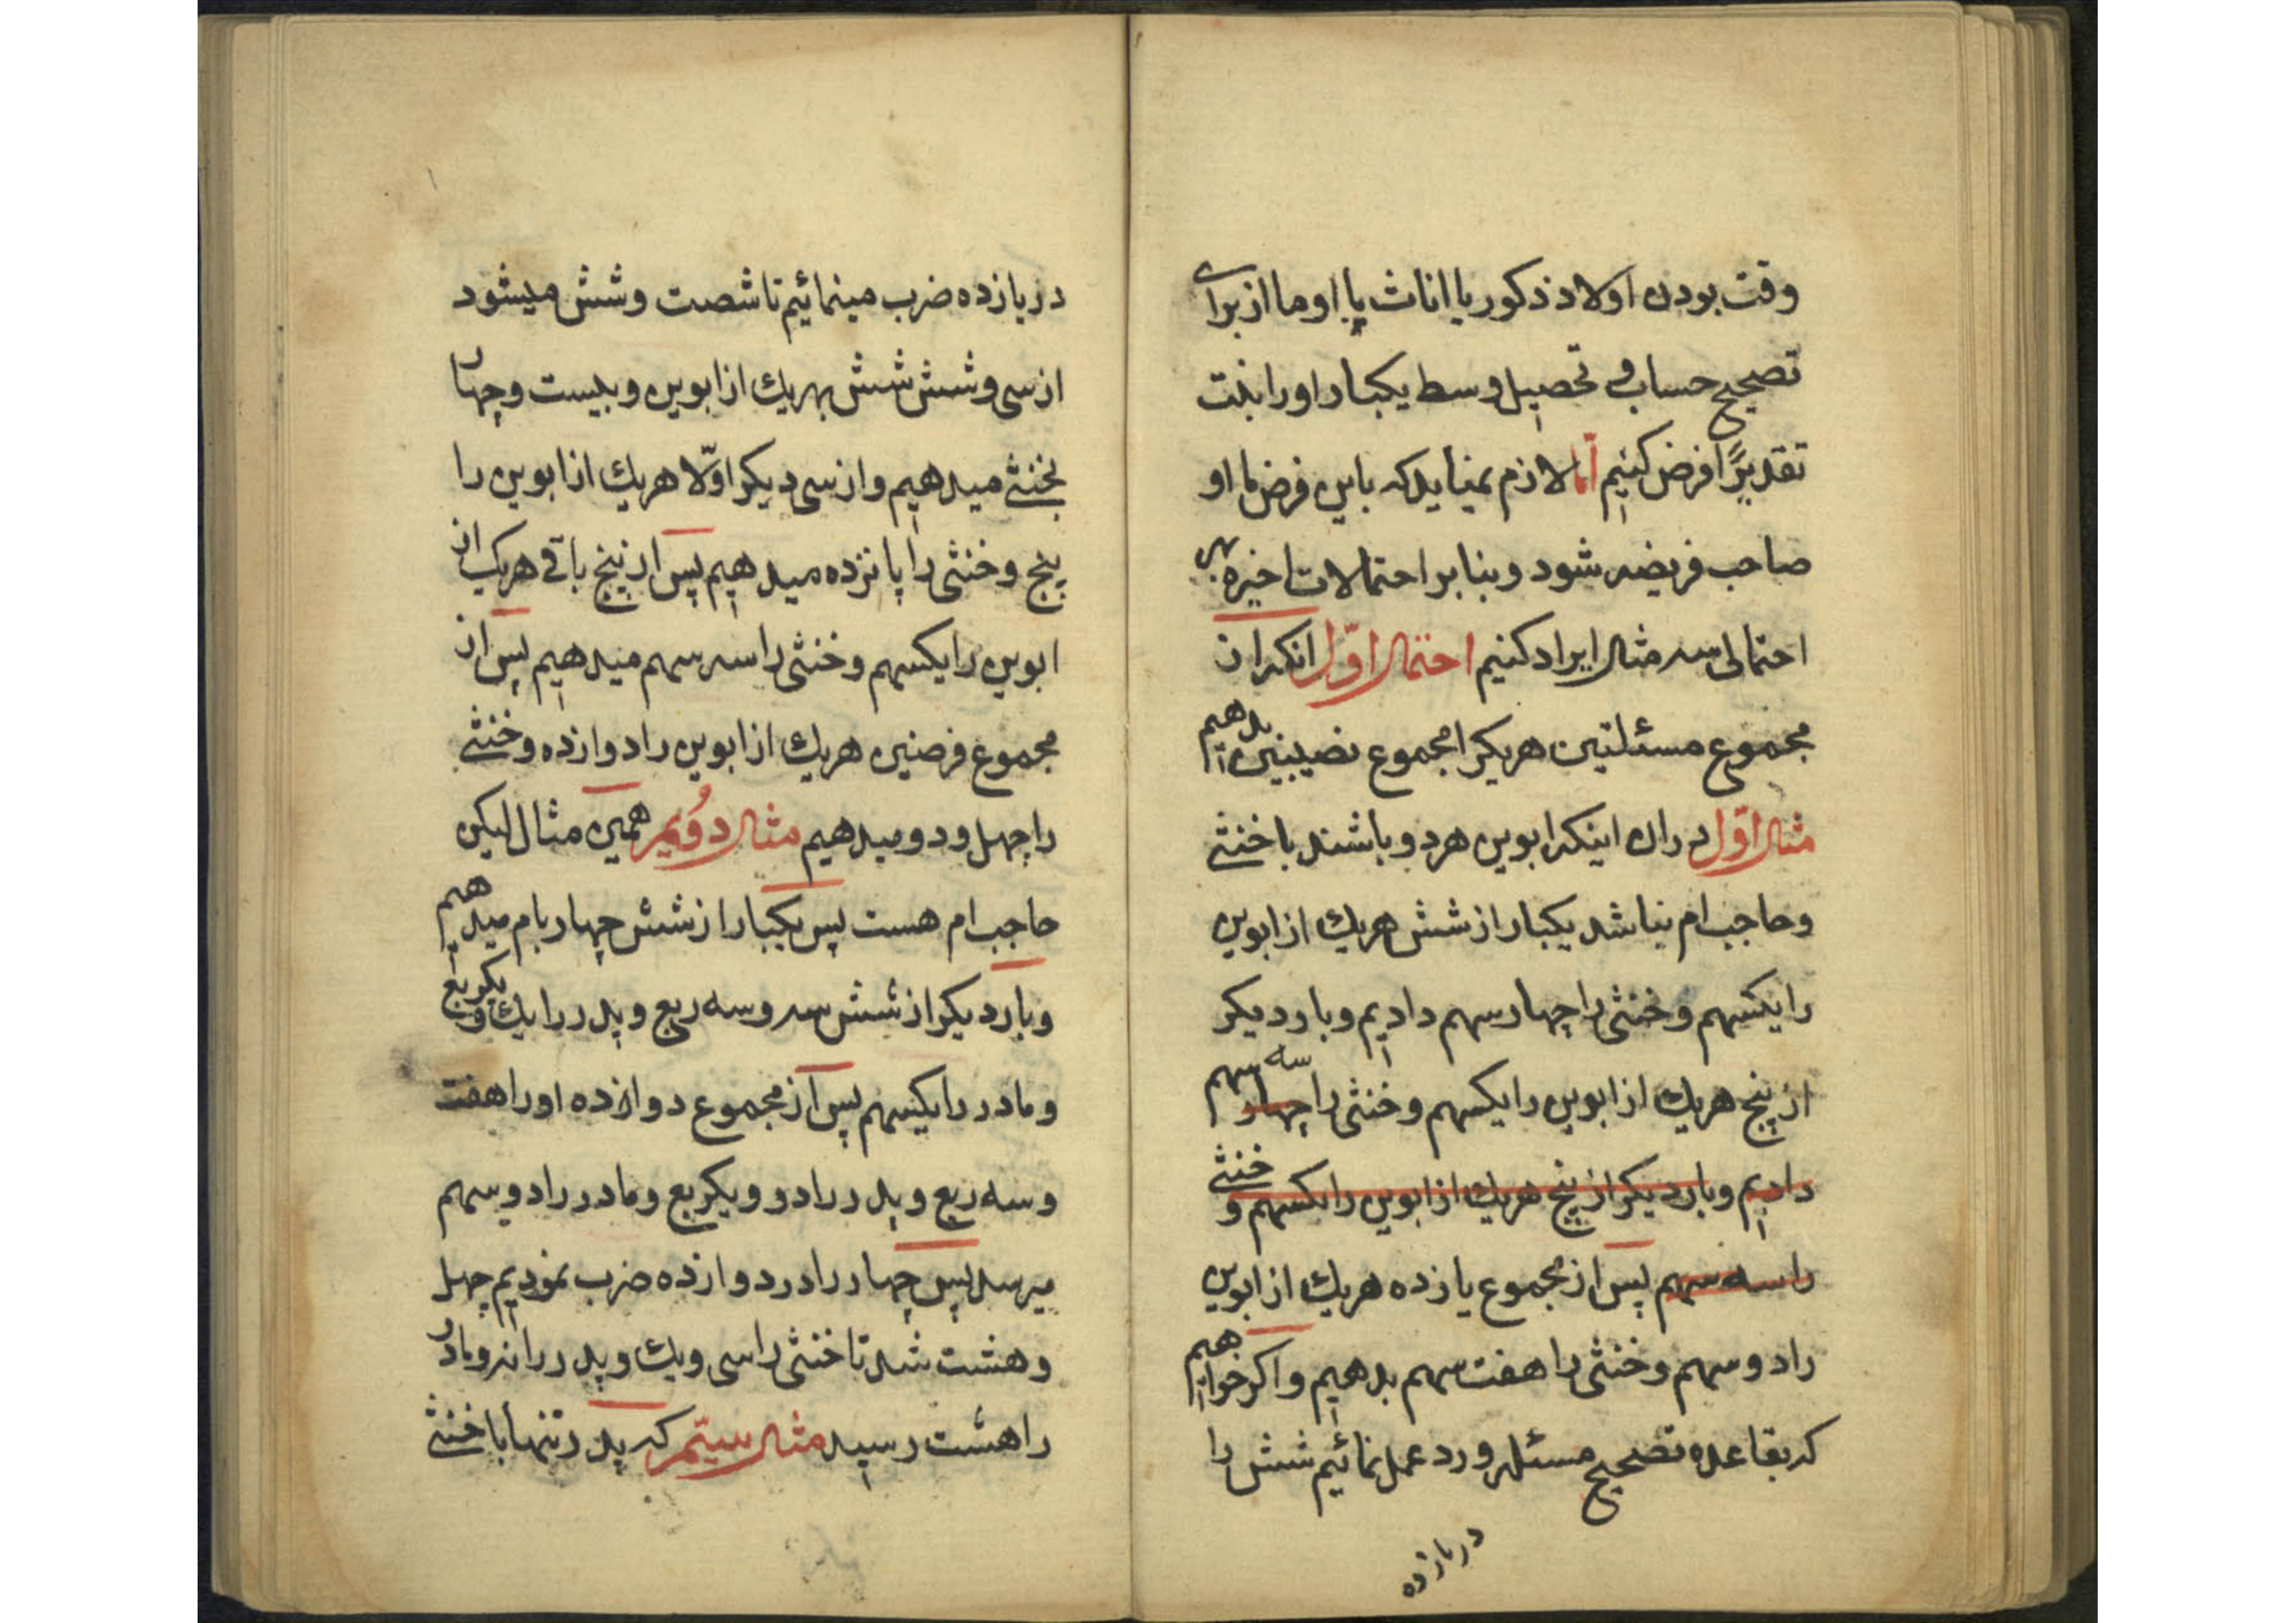 وقت بودن اولاد ذکور یا اناث یا با او ما از برای
تصحیح حساب و تحصیل وسط یکبار او را بنت
تقدیرًا فرض کنیم امّا لازم نمیاید که باین فرض ما او
صاحب فریضه شود و بنا بر احتمالات اخیره بهر
احتمالی سه مثال ایراد کنیم احتمال اوّل انکه از
مجموع مسئلتین هریکرا مجموع نصیبین بدهیم
مثال اوّل دران اینکه ابوین هردو باشند با خنثی
و حاجب ام نباشد یکبار از شش هریك از ابوین
را یکسهم و خنثی را چهار سهم دادیم و بار دیکر
از پنج هریك از ابوین را یکسهم و خنثی را چهار سه سهم
دادیم و بار دیکر از پنج هریك از ابوین را یکسهم و خنثی
را سه سهم پس از مجموع یازده هریك از ابوین
را دو سهم و خنثی را هفت سهم بدهیم و اکر خواهیم
که بقاعده تصحیح مسئله و رد عمل نمائیم شش را
در یازده
در یازده ضرب مینمائیم تا شصت و شش میشود
از سی و شش شش بهریك از ابوین و بیست و چهار
بخنثی میدهیم و از سی دیکر اوّلا هریك از ابوین را
پنج و خنثی را پانزده میدهیم پس از پنج باقی هریك از
ابوین را یکسهم و خنثی را سه سهم میدهیم پس از
مجموع فرضین هریك از ابوین را دوازده و خنثی
را چهل و دو میدهیم مثال دوُیم همین مثال لیکن
حاجب ام هست پس یکبار از شش چهار بام میدهیم
و بار دیکر از شش سه و سه ربع و پدر را یك و یکربع
و مادر را یکسهم پس از مجموع دوازده او را هفت
و سه ربع و پدر را دو و یکربع و مادر را دو سهم
میرسد پس چهار را در دوازده ضرب نمودیم چهل
و هشت شد تا خنثی را سی و یك و پدر را نه و مادر
را هشت رسید مثال سیّم که پدر تنها با خنثی